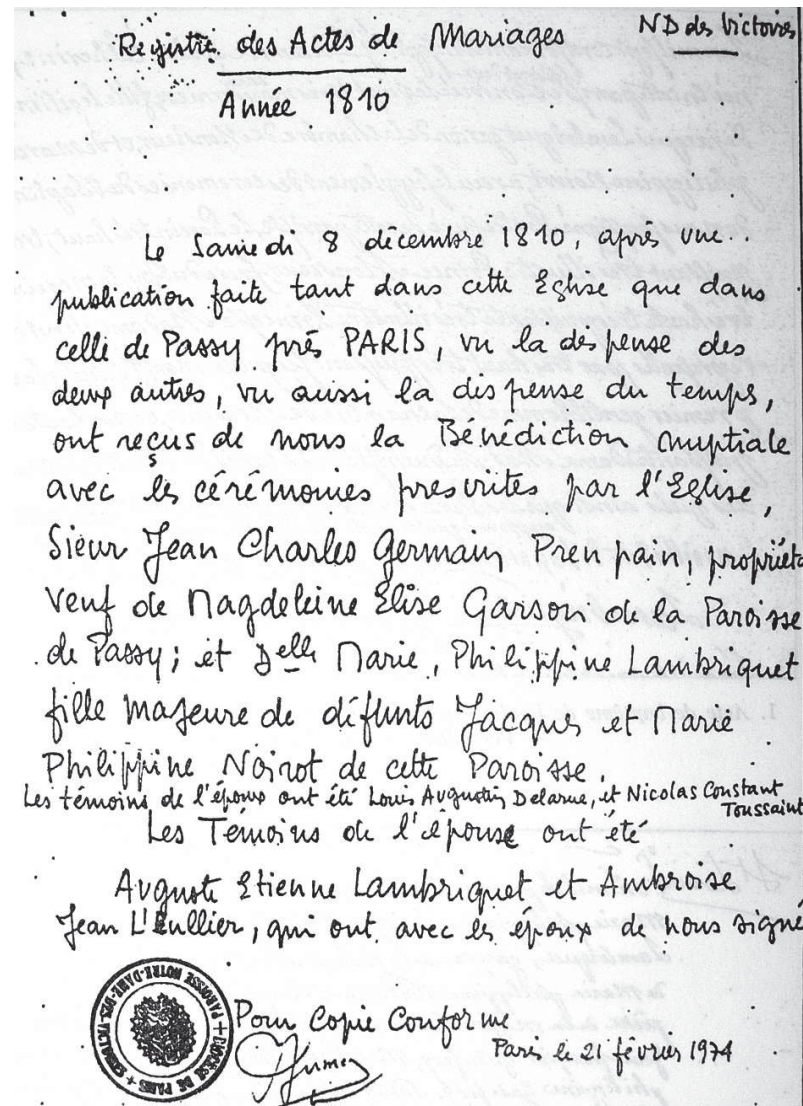 Registre des Actes de Mariages
ND des Victoires
Année 1810
Le Samedi 8 décembre 1810, après une
publication faite tant dans cette Eglise que dans
celle de Passy près PARIS, vu la dispense des
deux autres, vu aussi la dispense du temps,
ont reçus de nous la Bénédiction nuptiale
avec les cérémonies prescrites par l'Eglise,
Sieur Jean Charles Germain Prempain, propriéta
veuf de Magdeleine Elise Garson de la Paroisse
de Passy; et Delle Marie, Philippine Lambriquet
fille majeure de défunts Jacques et Marie
Philippine Noirot de cette Paroisse.
Les témoins de l'époux ont été Louis Augustin Delarue, et Nicolas Constant
Toussaint
Les Témoins de l'épouse ont été
Auguste Etienne Lambriquet et Ambroise
Jean L'Eullier, qui ont avec les époux de nous signé
PAROISSE NOTRE-DAME-DES-VICTOIRES
+ DIOCÈSE DE PARIS +
Pour Copie Conforme
Paris le 21 février 1974